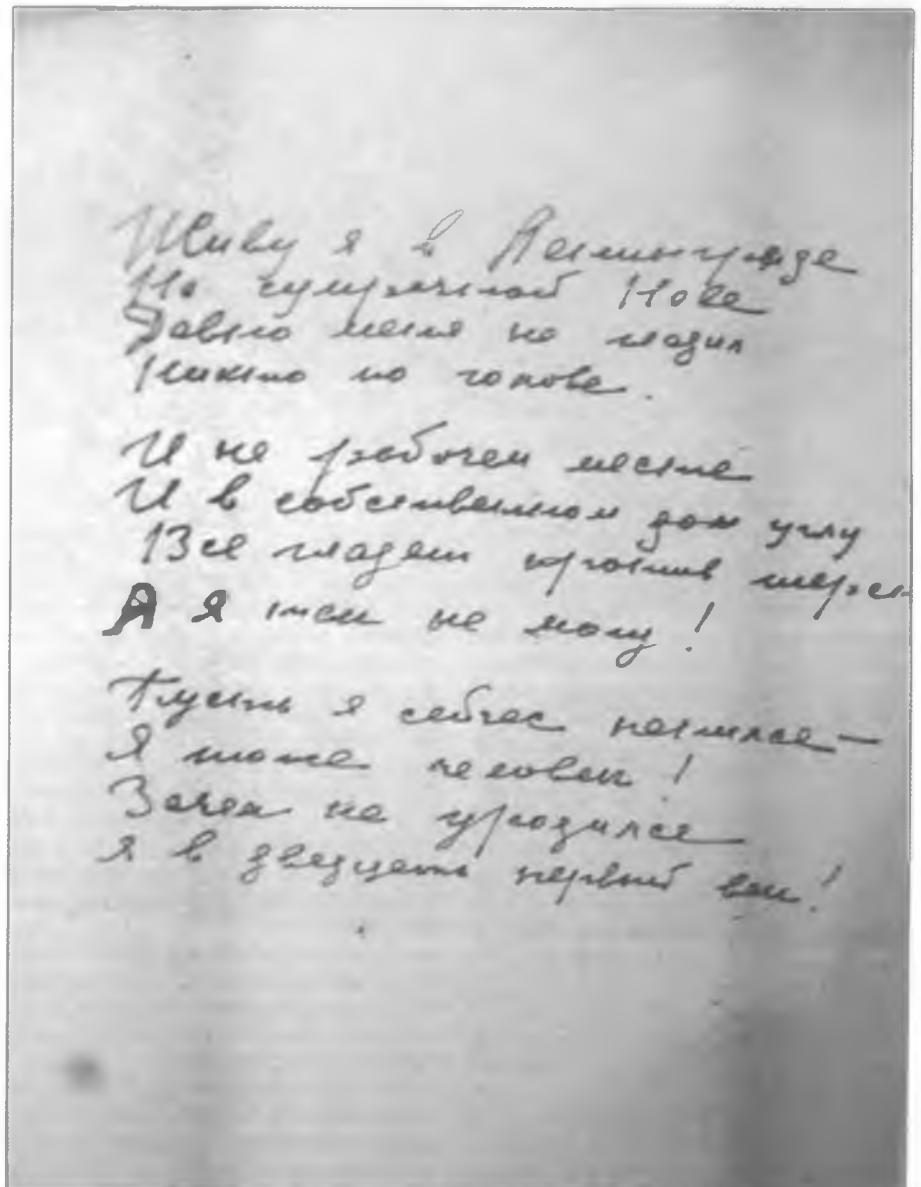 Живу я в Ленинграде
На сумрачной Неве
Давно меня не гладил
Никто по голове.
И на рабочем месте
И в собственном дом углу
Все гладят против шерсти
А я так не могу!
Пусть я сейчас напился —
Я тоже человек!
Зачем не уродился
Я в двадцать первый век!